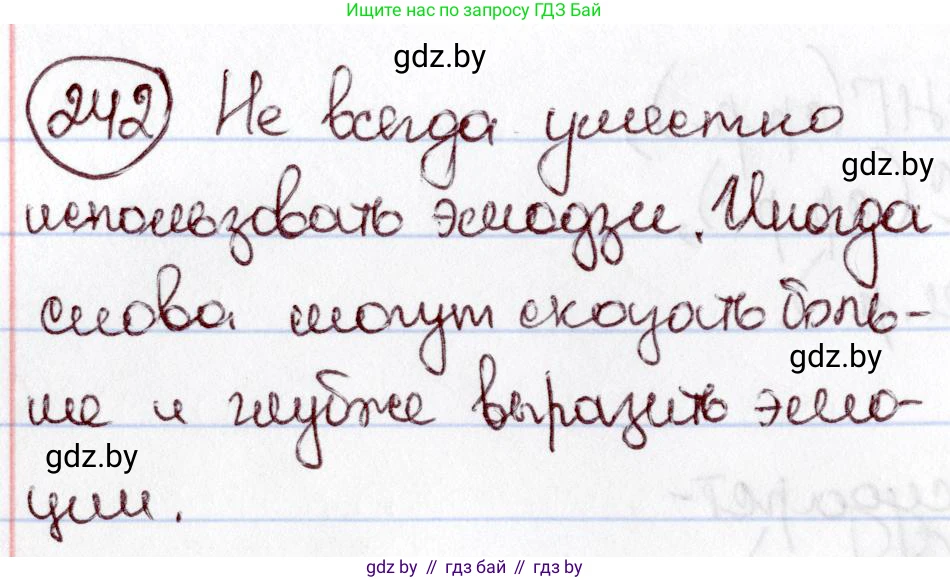 Ищите нас по запросу ГДЗ Бай
gdz.by
242 Не всегда уместно
gdz.by
использовать эмодзи. Иногда
слова могут сказать боль-
gdz.by
ше и глубже выразить эмо-
gdz.by
ции.
gdz.by // гдз бай // gdz by